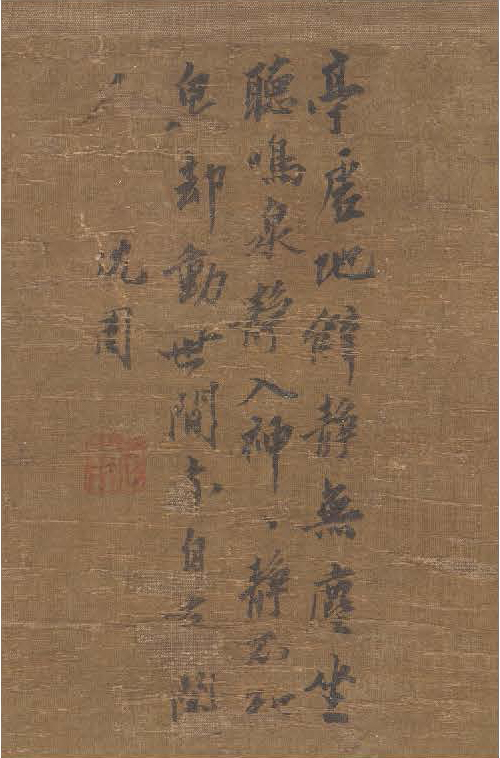 亭虛地僻靜無塵坐
聽鳴泉靜入神、靜不知
魚却動世間亦自有閒
人
沈周